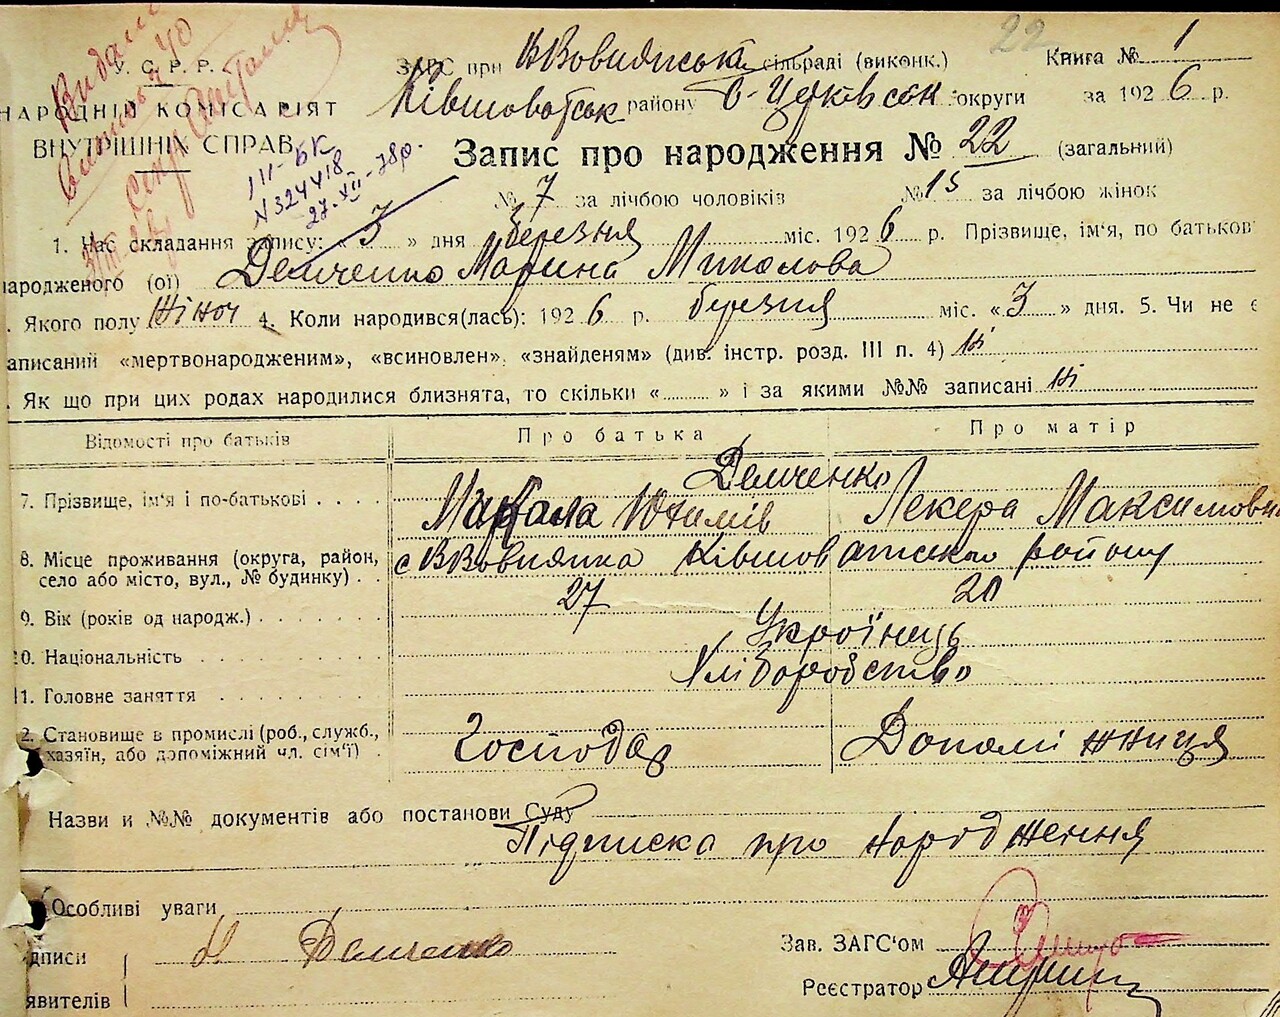 22
У.С.Р.Р.
НАРОДНІЙ КОМІСАРІЯТ
ВНУТРІШНІХ СПРАВ
Видано
III-БК
N 324418
27-XII-78р.
ЗАГС при В Вовнянській сільраді (виконк.) Книга № 1
Ківшоватськ району Б-Церківськ округи за 1926 р.
Запис про народження № 22 (загальний)
№ 7 за лічбою чоловіків № 15 за лічбою жінок
1. Час складання запису: « 3 » дня березня міс. 1926 р. Прізвище, ім'я, по батьков
народженого (ої) Демченко Марина Миколова
Якого полу жіноч 4. Коли народився(лась): 1926 р. березня міс. « 3 » дня. 5. Чи не є
записаний «мертвонародженим», «всиновлен», «знайденям» (див. інстр. розд. III п. 4) ні
Як що при цих родах народилися близнята, то скільки « » і за якими №№ записані ні
Відомості про батьків Про батька Про матір
Демченко
7. Прізвище, ім'я і по-батькові Микола Юхимів Лекера Максимовна
8. Місце проживання (округа, район, село або місто, вул., № будинку) с ВВовнянка Ківшоватськ району
9. Вік (років од народж.) 27 20
10. Національність Українець
11. Головне заняття Хліборобство
2. Становище в промислі (роб., служб., хазяїн, або допоміжний чл. сім'ї) Господар Допоміжниця
Назви и №№ документів або постанови Суду
Підписка про народження
Особливі уваги
дписи Н Демченко Зав. ЗАГС'ом
явителів Реєстратор